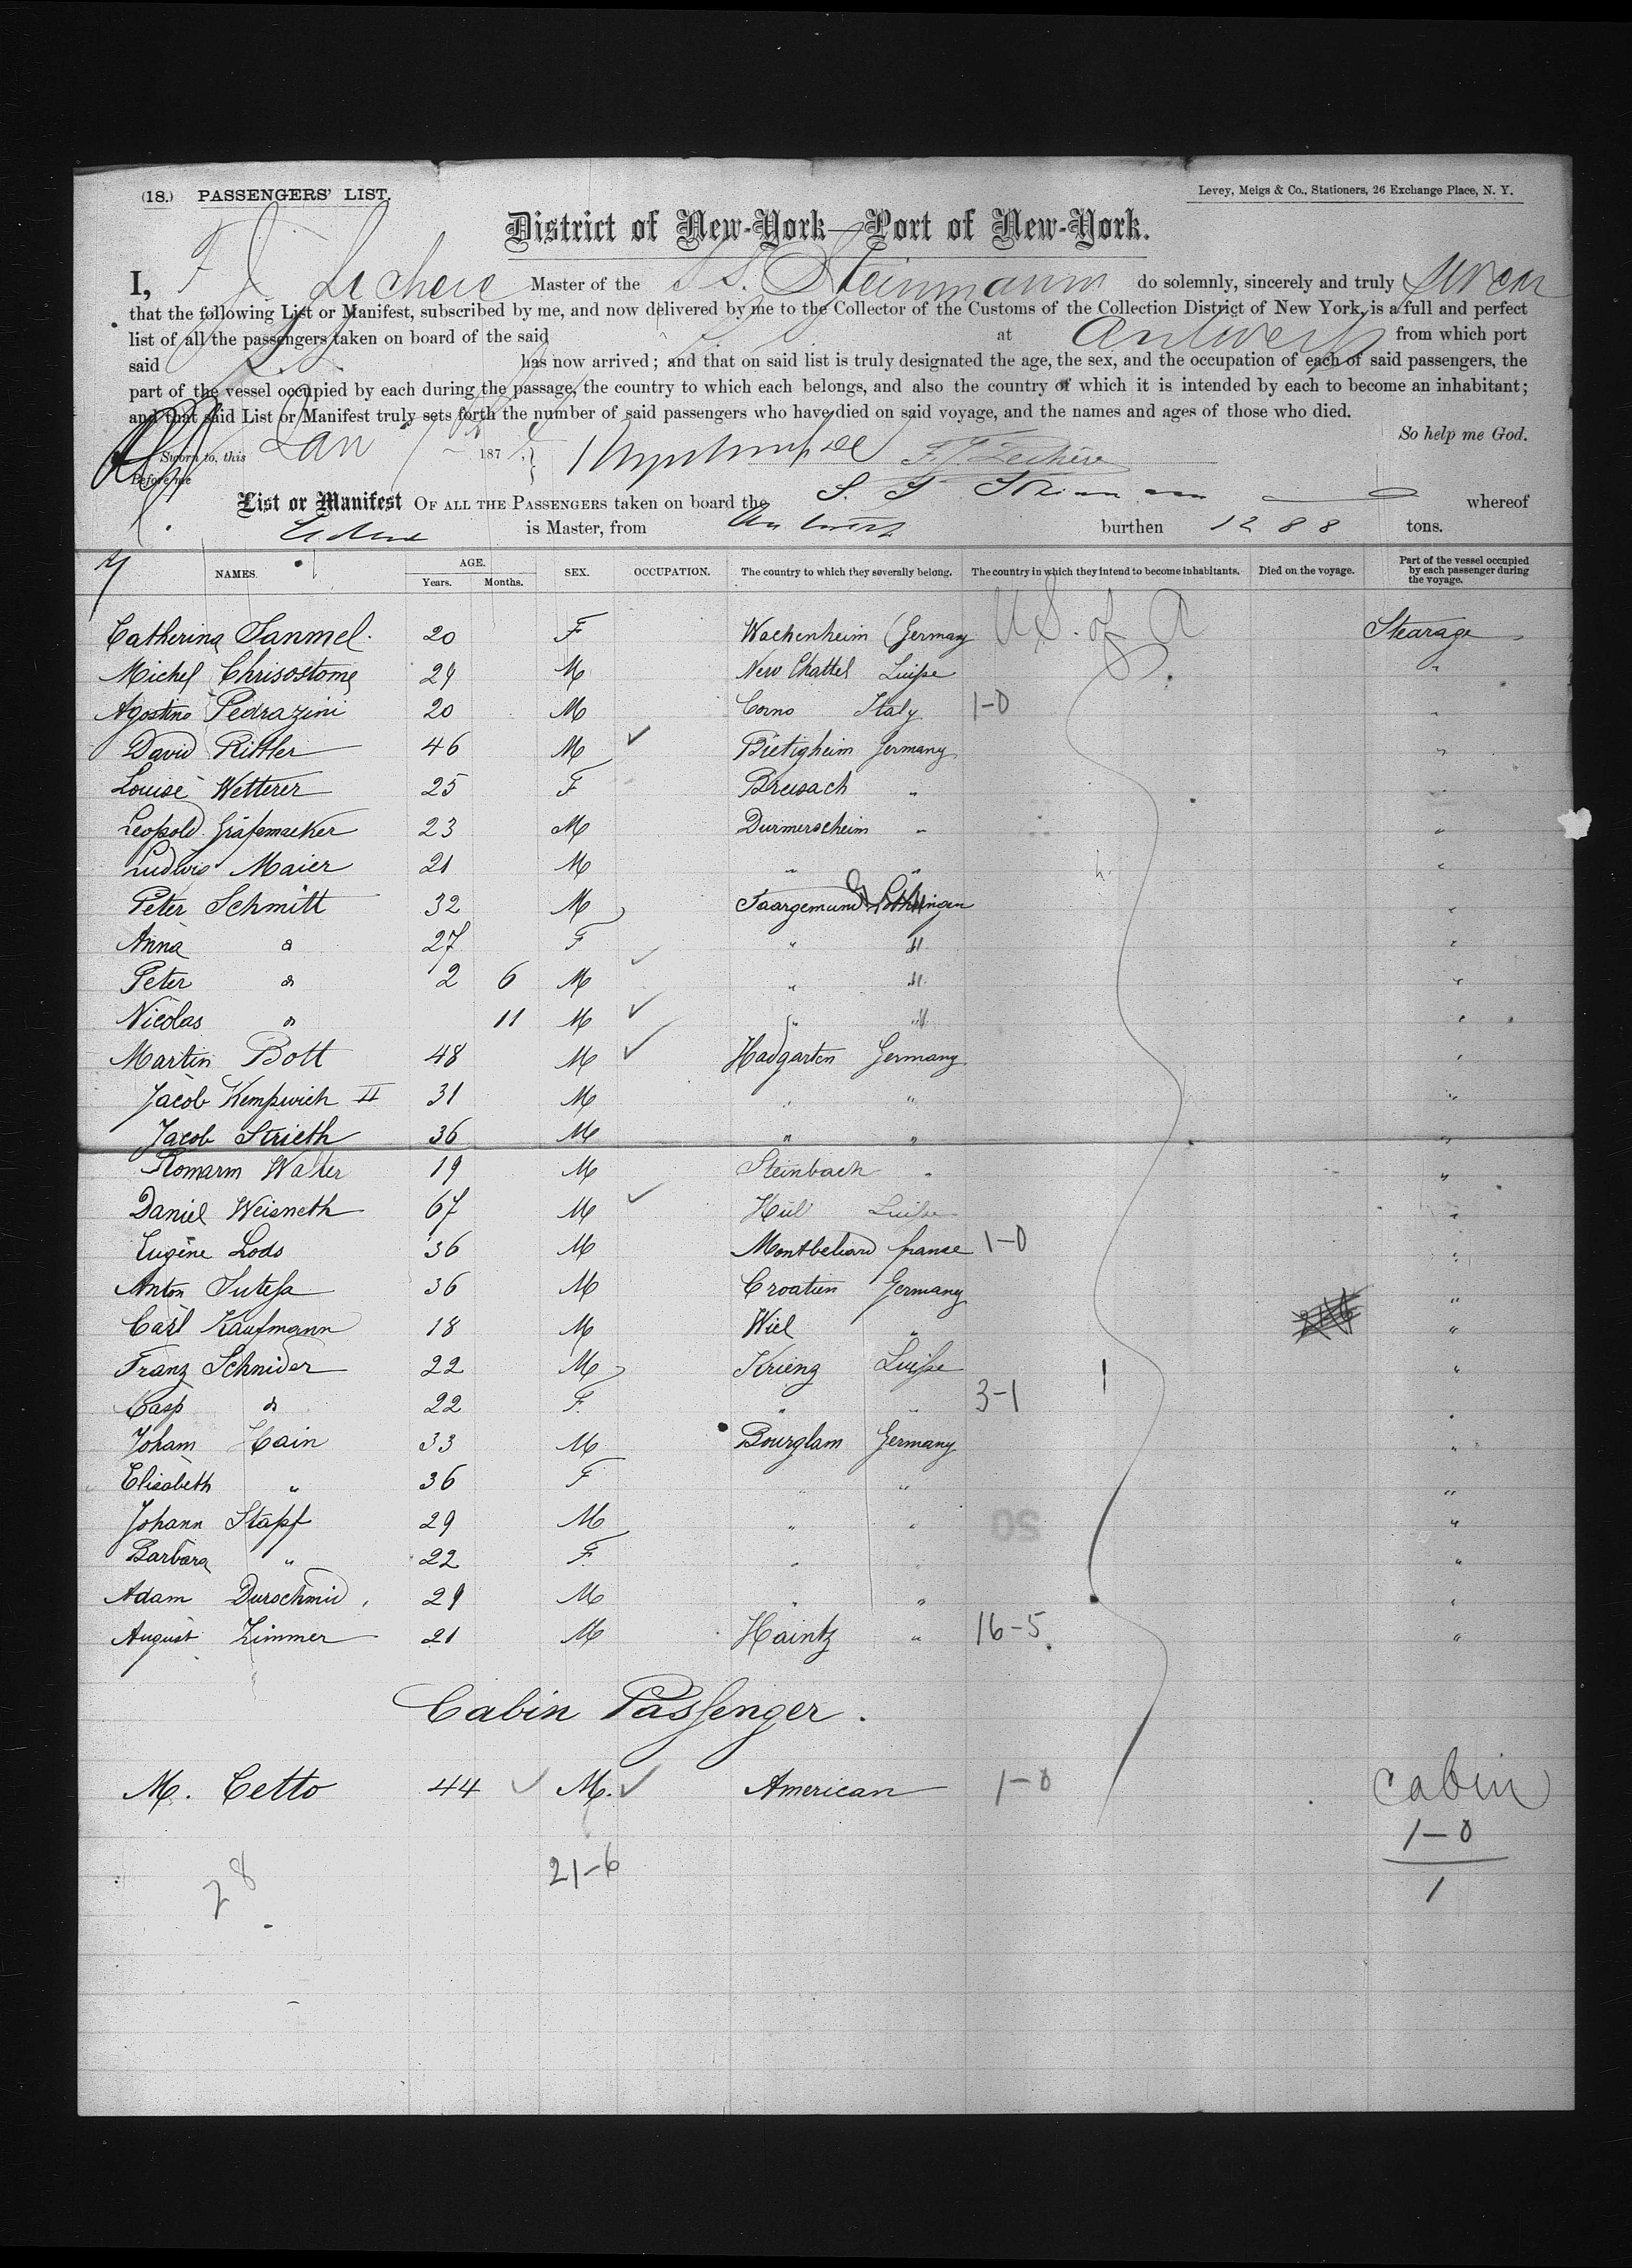 (18.) PASSENGERS' LIST.
Levey, Meigs & Co., Stationers, 26 Exchange Place, N. Y.
District of New-York—Port of New-York.
I, F J Lechere Master of the S.S. Steinmann do solemnly, sincerely and truly swear
that the following List or Manifest, subscribed by me, and now delivered by me to the Collector of the Customs of the Collection District of New York, is a full and perfect
list of all the passengers taken on board of the said at Antwerp from which port
said has now arrived; and that on said list is truly designated the age, the sex, and the occupation of each of said passengers, the
part of the vessel occupied by each during the passage, the country to which each belongs, and also the country of which it is intended by each to become an inhabitant;
and that said List or Manifest truly sets forth the number of said passengers who have died on said voyage, and the names and ages of those who died.
So help me God.
Sworn to, this Jan 187
Before me
List or Manifest OF ALL THE PASSENGERS taken on board the whereof
is Master, from burthen 1288 tons.
NAMES. AGE. Years. Months. SEX. OCCUPATION. The country to which they severally belong. The country in which they intend to become inhabitants. Died on the voyage. Part of the vessel occupied by each passenger during the voyage.
Catherina Sanmel 20 F Wachenheim Germany U.S. of A Stearage
Michel Chrisostome 24 M New Chattel Suisse "
Agostino Pedrazini 20 M Corno Italy 1-0 "
David Rittler 46 M Bietigheim Germany "
Louise Wetterer 25 F Breisach " "
Leopold 23 M Durmerscheim " "
Ludwig Maier 21 M " " "
Peter Schmitt 32 M Saargemund "
Anna " 27 F " " "
Peter " 2 6 M " " "
Nicolas " 11 M " " "
Martin Bott 48 M Hadgarten Germany "
Jacob Kempwich II 31 M " " "
Jacob Strieth 36 M " " "
Romarm Walter 19 M Steinbach " "
Daniel Weisneth 67 M Suisse "
Eugène Lods 36 M Montbeliard franse 1-0 "
Anton Sutesa 36 M Croatien Germany "
Carl Kaufmann 18 M Wiel " "
Franz Schnider 22 M Krienz Suisse "
Casp " 22 F " " 3-1 "
Joham Hain 33 M Bourglam Germany "
Elisabeth " 36 F " " "
Johann Stapf 29 M " " "
Barbara " 22 F " "
Adam Durschmid 29 M " " "
August Zimmer 21 M Haintz " 16-5 "
Cabin Passenger.
M. Cetto 44 M. American 1-0 cabin
1-0
28 21-6 1